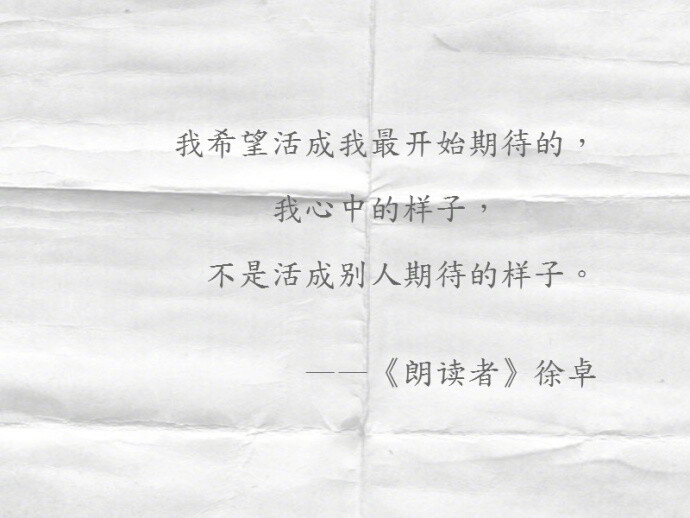 我希望活成我最开始期待的，
我心中的样子，
不是活成别人期待的样子。
——《朗读者》徐卓